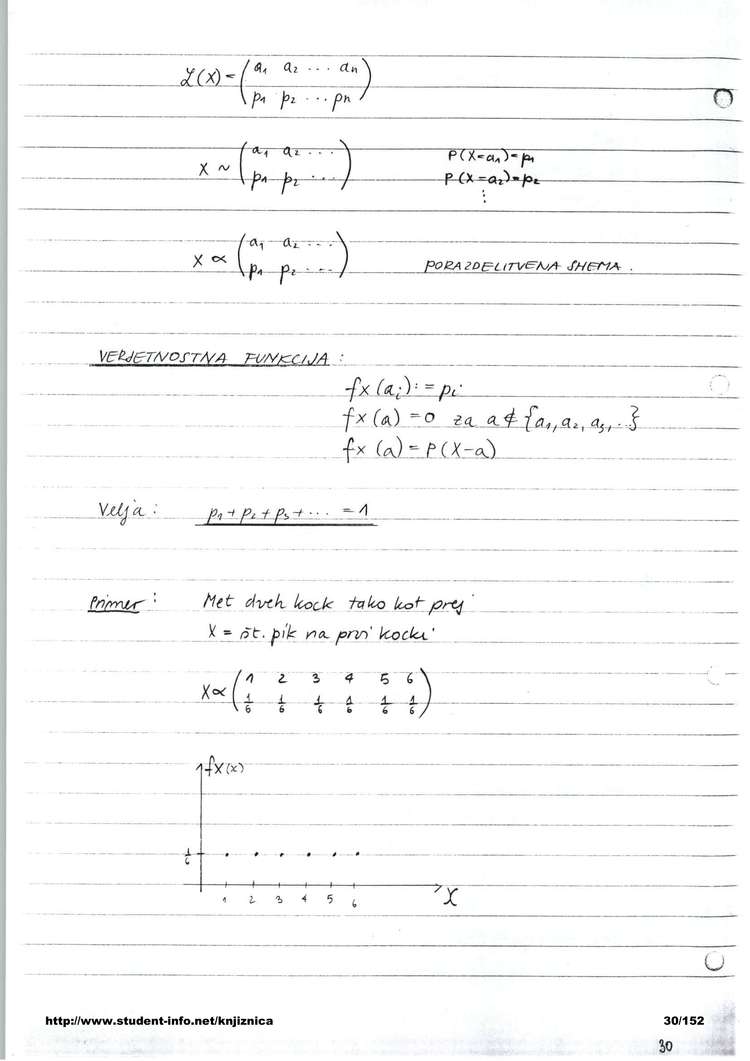 ℒ(X) = (a₁ a₂ ... aₙ
p₁ p₂ ... pₙ)
X ~ (a₁ a₂ ...
p₁ p₂ ...)
P(X=a₁)=p₁
P(X=a₂)=p₂
⋮
X ∝ (a₁ a₂ ...
p₁ p₂ ...)
PORAZDELITVENA SHEMA.
VERJETNOSTNA FUNKCIJA:
fx(aᵢ) := pᵢ
fx(a) = 0 za a ∉ {a₁, a₂, a₃, ..}
fx(a) = P(X=a)
Velja: p₁ + p₂ + p₃ + ... = 1
Primer: Met dveh kock tako kot prej
X = št. pik na prvi kocki
X ∝ (1 2 3 4 5 6
1/6 1/6 1/6 1/6 1/6 1/6)
fx(x)
1/6
1 2 3 4 5 6
X
http://www.student-info.net/knjiznica 30/152
30